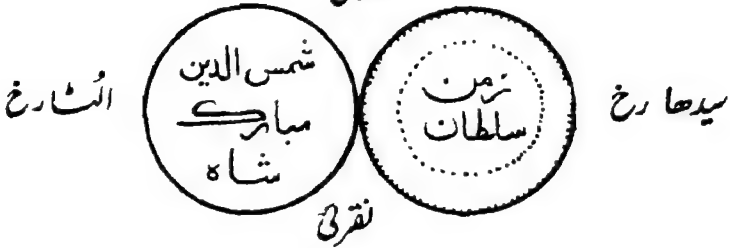 سیدھا رخ
زمن
سلطان
شمس الدین
مبارک
شاہ
الٹا رخ
نقرئی